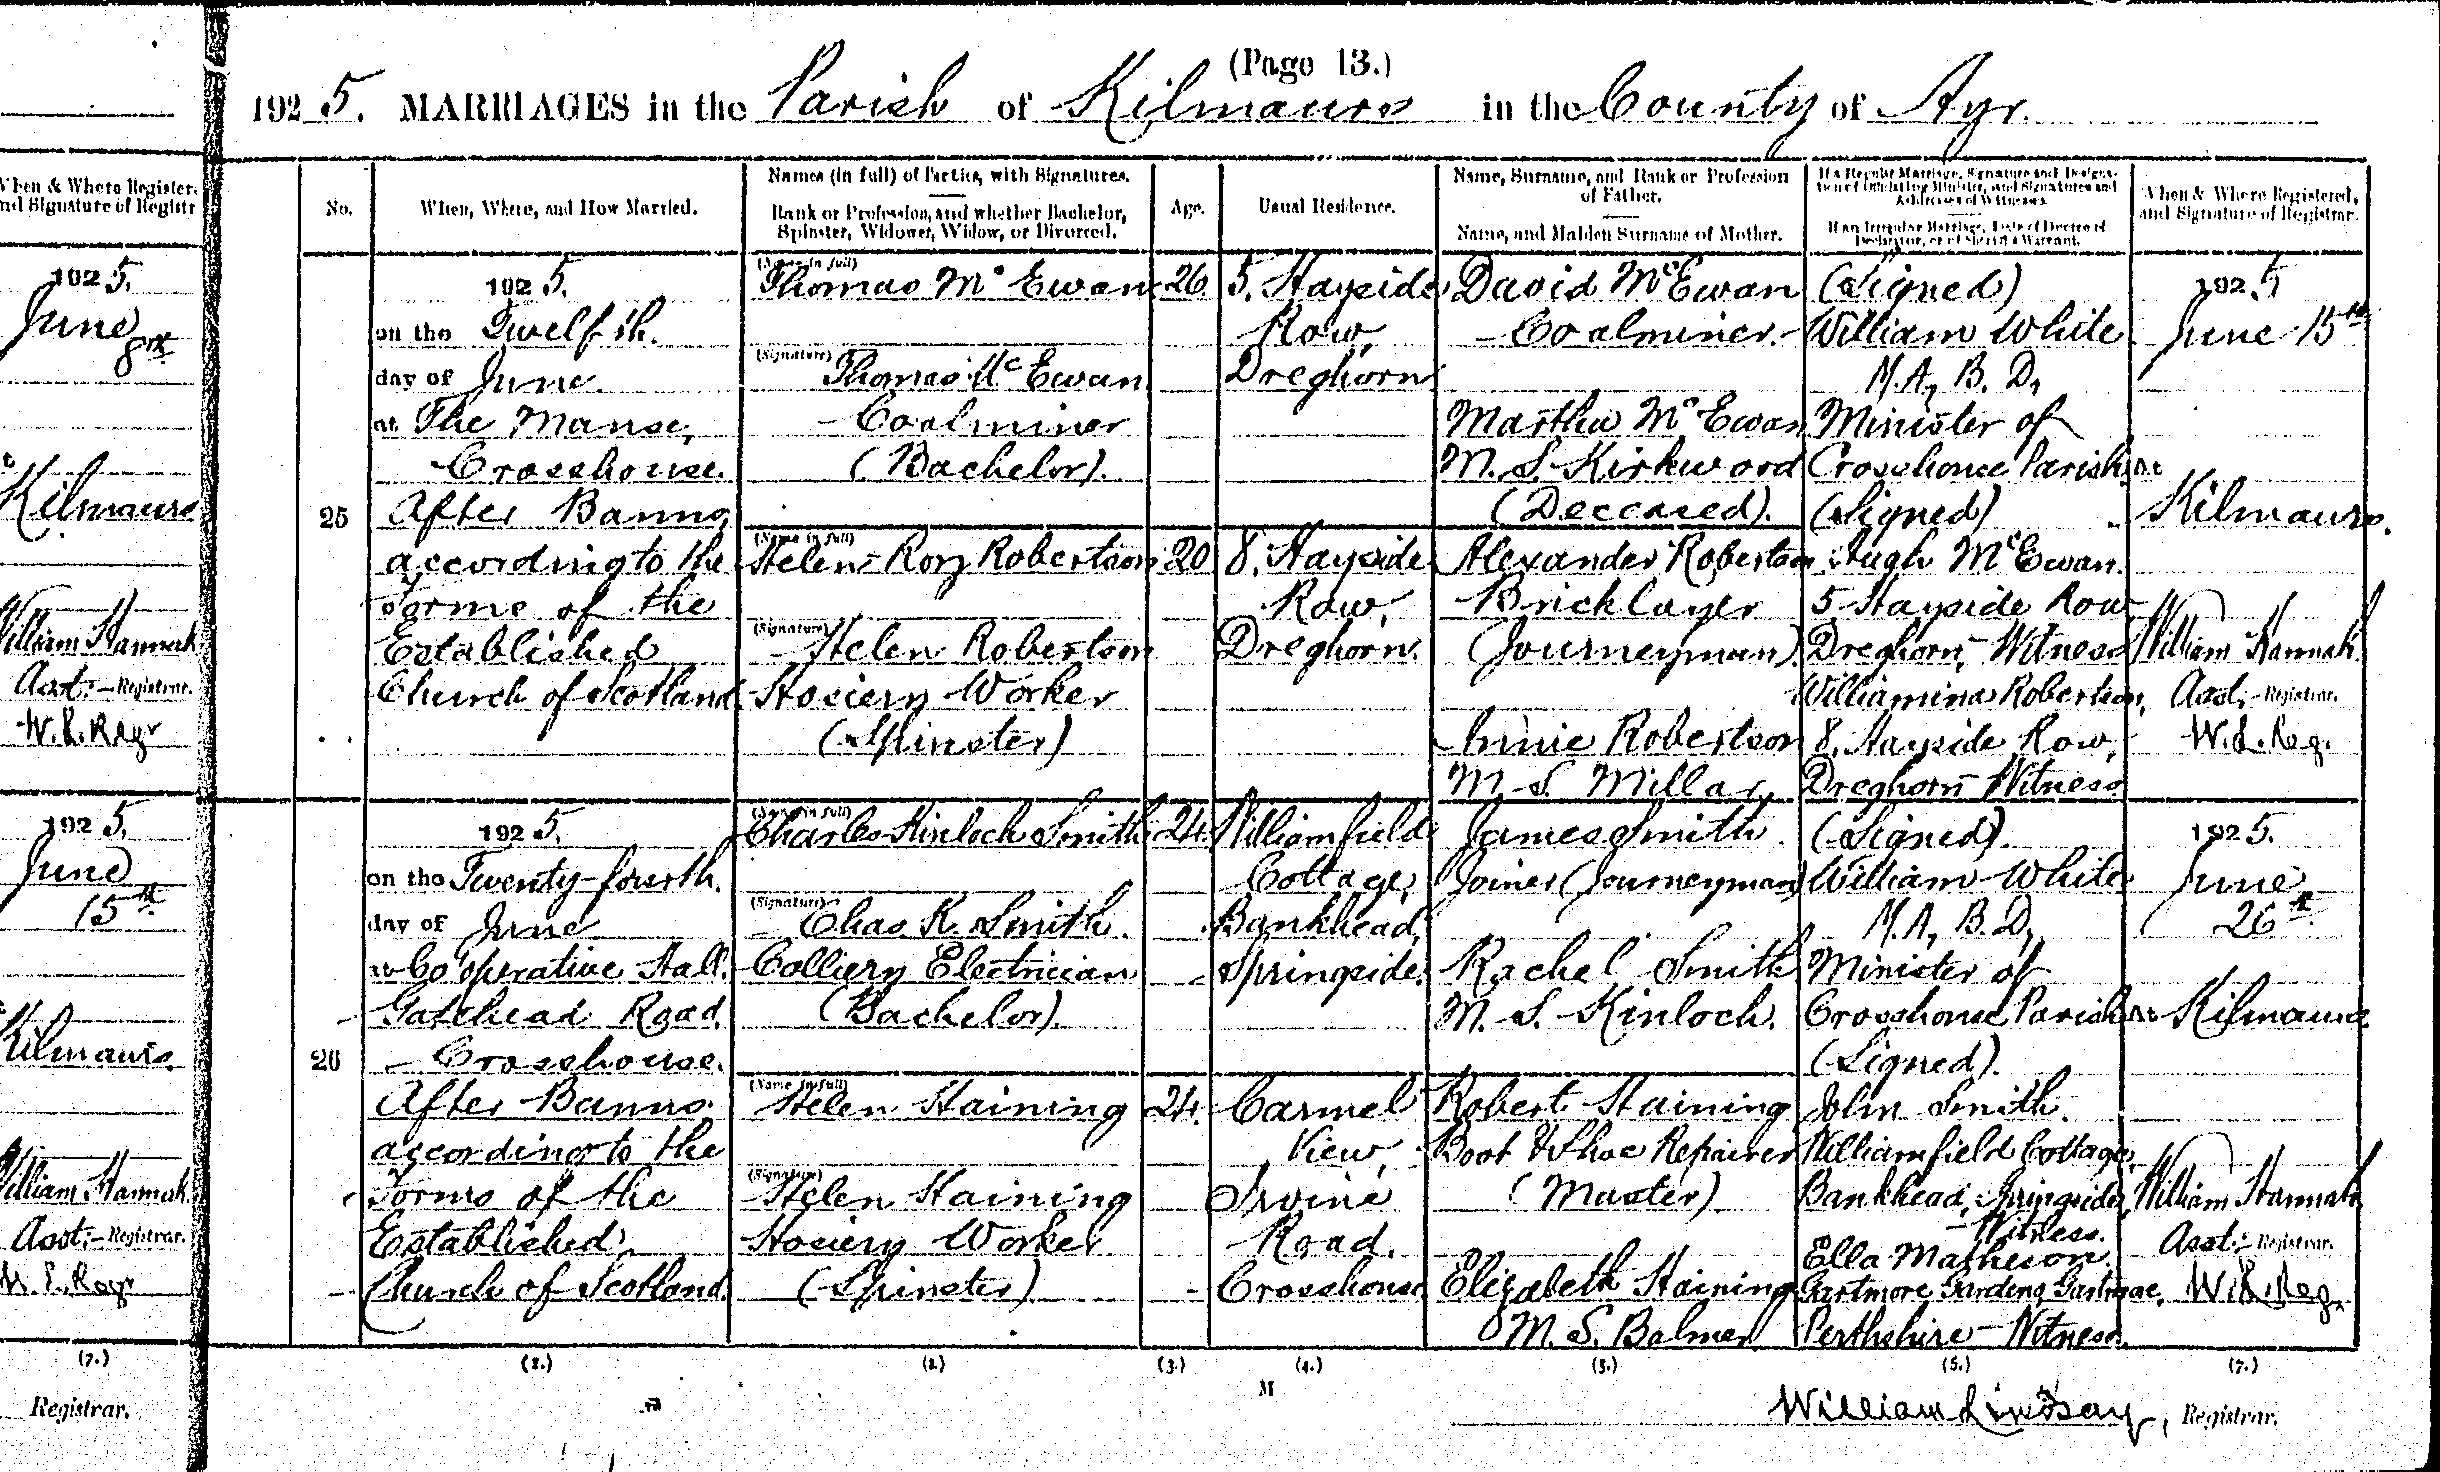 (Page 13.)
1925. MARRIAGES in the Parish of Kilmaurs in the County of Ayr.
When & Where Register
and Signature of Registr
1925.
June
8th
Kilmaurs
William Hannah
Asst. - Registrar.
W. L. Regr
1925.
June
15th
Kilmaurs.
William Hannah
Asst. - Registrar.
W. L. Regr
(7.)
Registrar.
No.
When, Where, and How Married.
Names (in full) of Parties, with Signatures.
Rank or Profession, and whether Bachelor,
Spinster, Widower, Widow, or Divorced.
Age.
Usual Residence.
Name, Surname, and Rank or Profession
of Father.
Name, and Maiden Surname of Mother.
If a Regular Marriage, Signature and Designa-
tion of Officiating Minister, and Signatures and
Addresses of Witnesses.
If an Irregular Marriage, Date of Decree of
Declarator, or of Sheriff's Warrant.
When & Where Registered,
and Signature of Registrar.
25
1925.
on the Twelfth.
day of June.
at The Manse,
Crosshouse.
After Banns
according to the
Forms of the
Established
Church of Scotland
(Name in full)
Thomas Mc Ewan
(Signature)
Thomas Mc Ewan
Coalminer
(Bachelor).
26
5. Hayside
Row,
Dreghorn
David McEwan
Coalminer.
Martha McEwan
M. S. Kirkwood
(Deceased).
(Name in full)
Helen Roy Robertson
(Signature)
Helen Robertson
Hosiery Worker
(Spinster)
20
8. Hayside
Row,
Dreghorn.
Alexander Robertson
Bricklayer
(Journeyman).
Annie Robertson
M. S. Millar
(Signed)
William White
M.A., B.D.,
Minister of
Crosshouse Parish
(Signed)
Hugh McEwan.
5 Hayside Row
Dreghorn, Witness
Williamina Robertson,
8. Hayside Row,
Dreghorn Witness
1925
June 15th
at
Kilmaurs.
William Hannah
Asst. - Registrar.
W. L. Reg.
26
1925.
on the Twenty-fourth.
day of June
at Co'operative Hall.
Gatehead Road.
Crosshouse.
After Banns.
according to the
Forms of the
Established
Church of Scotland.
(Name in full)
Charles Kinloch Smith
(Signature)
Chas. K. Smith.
Colliery Electrician
(Bachelor).
24.
Williamfield
Cottage,
Bankhead,
Springside.
James Smith.
Joiner (Journeyman)
Rachel Smith
M. S. Kinloch.
(Name in full)
Helen Haining
(Signature)
Helen Haining
Hosiery Worker
(Spinster)
24.
Carmel
View,
Irvine
Road.
Crosshouse
Robert Haining
Boot & Shoe Repairer
(Master)
Elizabeth Haining
M. S. Balmer
(Signed).
William White
M.A., B.D.,
Minister of
Crosshouse Parish
(Signed).
John Smith.
Williamfield Cottage,
Bankhead, Springside,
Witness.
Ella Matheson.
Gartmore Gardens, Gartmore,
Perthshire - Witness.
1925.
June
26th
at Kilmaurs.
William Hannah
Asst. - Registrar.
W. L. Reg.
(1.)
(2.)
(3.)
(4.)
(5.)
(6.)
(7.)
M
William Lindsay, Registrar.